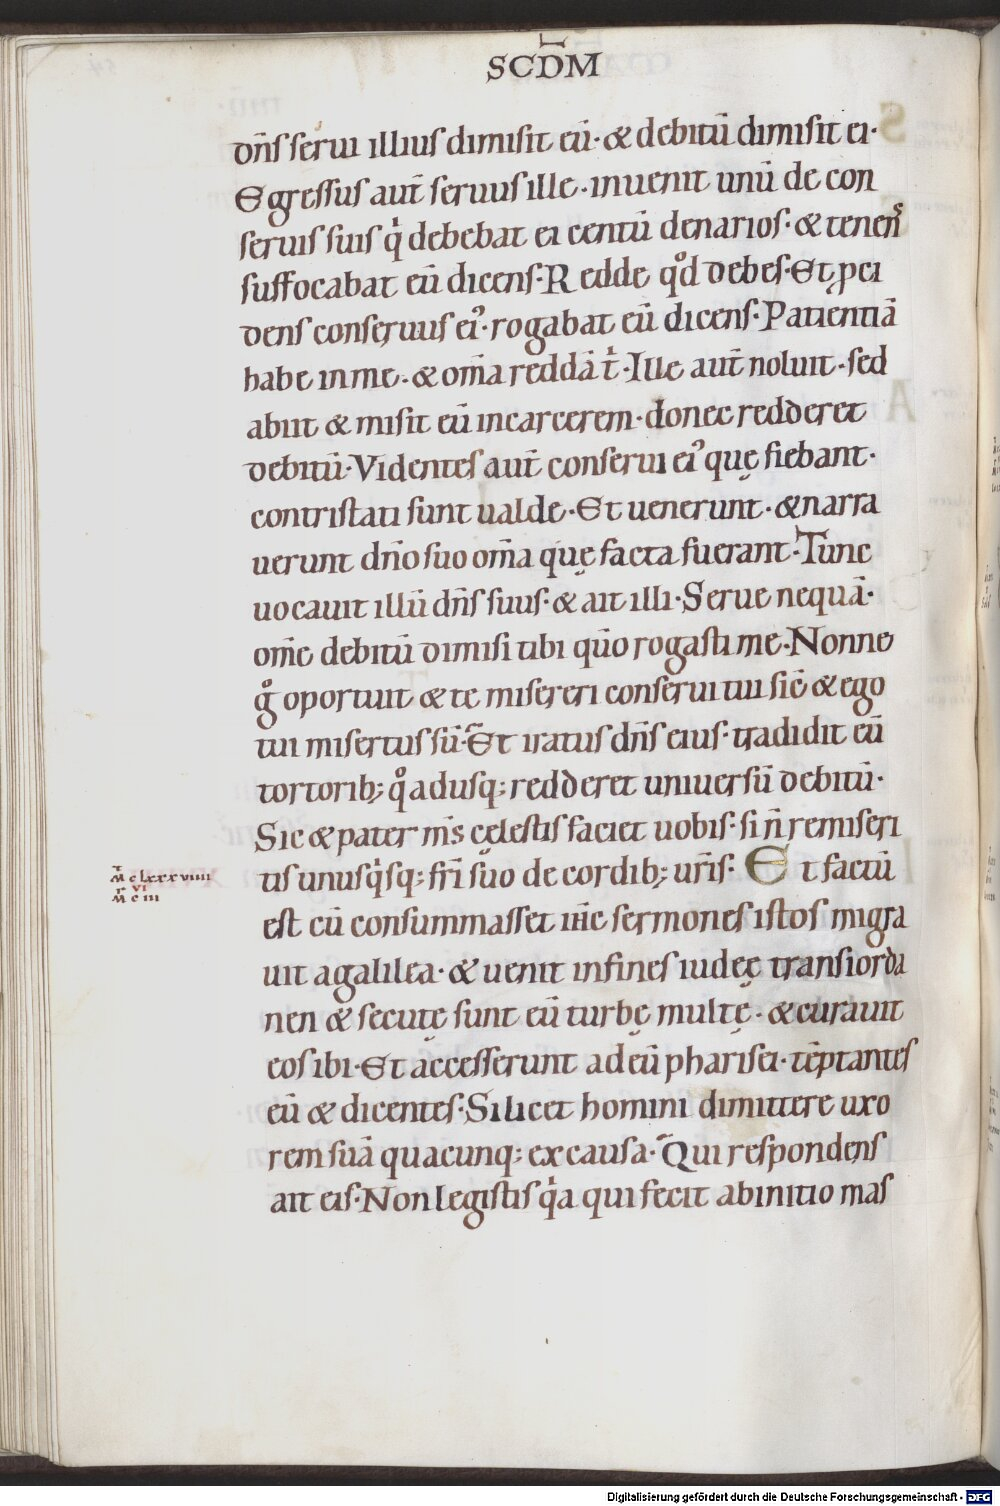 SCDM̅
dn̄s serui illius dimisit eū· & debitū dimisit ei·
Egressus aut̄ seruus ille· inuenit unū de con
seruis suis qͥ debebat ei centū denarios· & tenens
suffocabat eū dicens· Redde qͦd debes· Et ꝓci
dens conseruus ei᾿· rogabat eū dicens· Patientiā
habe in me· & om̄a reddā tͥ· Ille aut̄ noluit· sed
abiit & misit eū in carcerem· donec redderet
debitū· Videntes aut̄ conserui ei᾿ quę fiebant·
contristati sunt ualde· Et uenerunt· & narra
uerunt dn̄o suo om̄a quę facta fuerant· Tunc
uocauit illū dn̄s suus· & ait illi· Serue nequā·
om̄e debitū dimisi tibi qūo rogasti me· Nonne
gͦ oportuit & te misereri conserui tui sic̄ & ego
tui misertus sū· Et iratus dn̄s eius· tradidit eū
tortorib; qͦ adusq; redderet uniuersū debitū·
Sic & pater m̄s cęlestis faciet uobis· si n̄ remiseri
tis unusqͥsq; fr̄i suo de cordib; ur̄is· Et factū
M̅ clxxxviiii
VI
M̅ ciii
est cū consummasset ih̄c sermones istos migra
uit a galilea· & uenit in fines iudeę trans iorda
nen & secutę sunt eū turbę multę· & curauit
eos ibi· Et accesserunt ad eū pharisei· tēptantes
eū & dicentes· Si licet homini dimittere uxo
rem suā quacunq; ex causa· Qui respondens
ait eis· Non legistis qͥa qui fecit ab initio mas
Digitalisierung gefördert durch die Deutsche Forschungsgemeinschaft - DFG